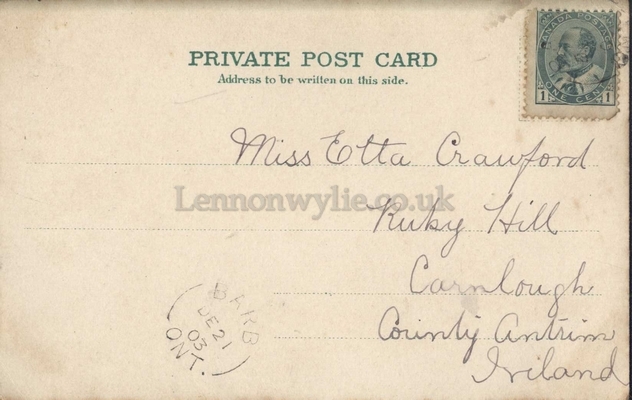 PRIVATE POST CARD
Address to be written on this side.
CANADA POSTAGE
1 ONE CENT 1
Miss Etta Crawford
Lennonwylie.co.uk
Ruby Hill
Carnlough
County Antrim
Ireland
BARB
DE 21
03
ONT.